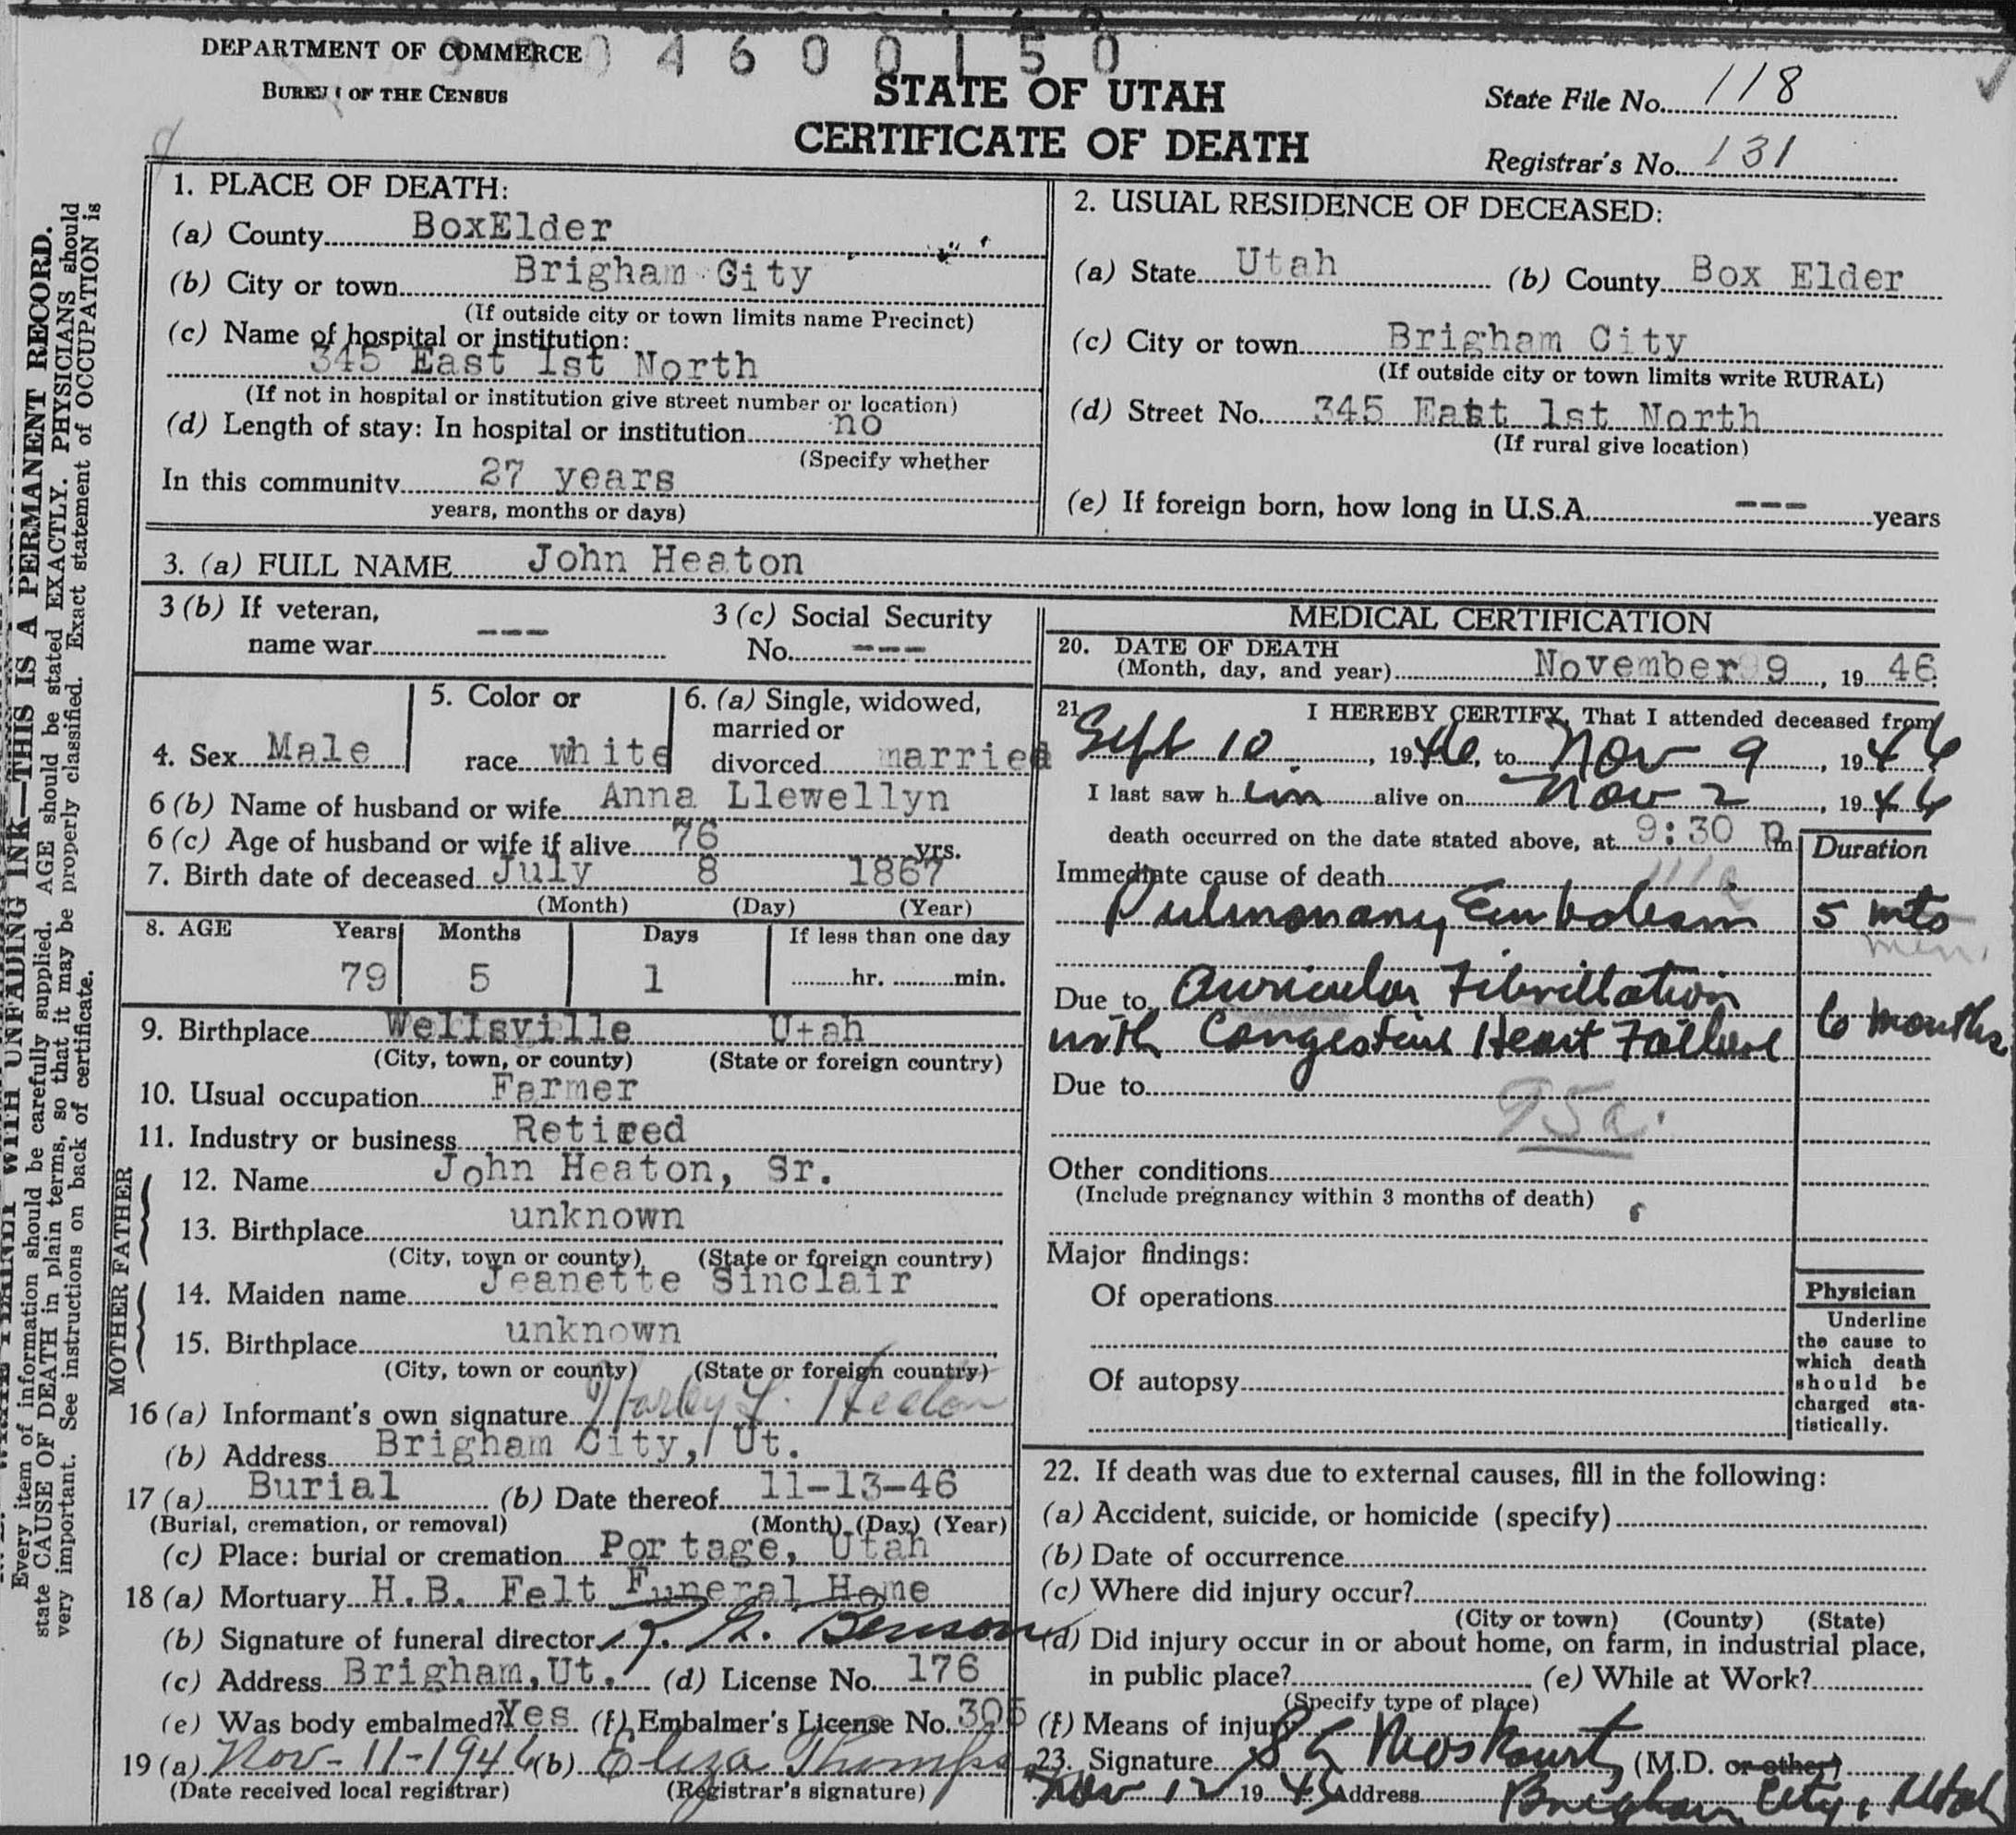 DEPARTMENT OF COMMERCE
BUREAU OF THE CENSUS
04600150
STATE OF UTAH
CERTIFICATE OF DEATH
State File No. 118
Registrar's No. 131
1. PLACE OF DEATH:
(a) County BoxElder
(b) City or town Brigham City
(If outside city or town limits name Precinct)
(c) Name of hospital or institution:
345 East 1st North
(If not in hospital or institution give street number or location)
(d) Length of stay: In hospital or institution no
(Specify whether
In this community 27 years
years, months or days)
2. USUAL RESIDENCE OF DECEASED:
(a) State Utah (b) County Box Elder
(c) City or town Brigham City
(If outside city or town limits write RURAL)
(d) Street No. 345 East 1st North
(If rural give location)
(e) If foreign born, how long in U.S.A. --- years
3. (a) FULL NAME John Heaton
3 (b) If veteran,
name war ---
3 (c) Social Security
No. ---
4. Sex Male
5. Color or
race white
6. (a) Single, widowed,
married or
divorced married
6 (b) Name of husband or wife Anna Llewellyn
6 (c) Age of husband or wife if alive 76 yrs.
7. Birth date of deceased July 8 1867
(Month) (Day) (Year)
8. AGE Years Months Days If less than one day
79 5 1 hr. min.
9. Birthplace Wellsville Utah
(City, town, or county) (State or foreign country)
10. Usual occupation Farmer
11. Industry or business Retired
FATHER
12. Name John Heaton, Sr.
13. Birthplace unknown
(City, town or county) (State or foreign country)
MOTHER
14. Maiden name Jeanette Sinclair
15. Birthplace unknown
(City, town or county) (State or foreign country)
16 (a) Informant's own signature Harley L. Heaton
(b) Address Brigham City, Ut.
17 (a) Burial (b) Date thereof 11-13-46
(Burial, cremation, or removal) (Month) (Day) (Year)
(c) Place: burial or cremation Portage, Utah
18 (a) Mortuary H.B. Felt Funeral Home
(b) Signature of funeral director Benson
(c) Address Brigham, Ut. (d) License No. 176
(e) Was body embalmed? Yes (f) Embalmer's License No. 305
19 (a) Nov-11-1946 (b) Eliza Thomps
(Date received local registrar) (Registrar's signature)
MEDICAL CERTIFICATION
20. DATE OF DEATH
(Month, day, and year) November 9, 19 46
21 I HEREBY CERTIFY, That I attended deceased from
Sept 10, 1946, to Nov 9, 1946
I last saw him alive on Nov 2, 1946
death occurred on the date stated above, at 9:30 p m
Duration
Immediate cause of death 111a
Pulmonary Embolism 5 mts
min.
Due to Auricular Fibrillation
with Congestive Heart Failure 6 months
Due to
95a.
Other conditions
(Include pregnancy within 3 months of death)
Major findings:
Of operations
Of autopsy
Physician
Underline
the cause to
which death
should be
charged sta-
tistically.
22. If death was due to external causes, fill in the following:
(a) Accident, suicide, or homicide (specify)
(b) Date of occurrence
(c) Where did injury occur?
(City or town) (County) (State)
(d) Did injury occur in or about home, on farm, in industrial place,
in public place? (e) While at Work?
(Specify type of place)
(f) Means of injury
23. Signature (M.D. or other)
Nov 12 19 Address Brigham City, Utah
WITH UNFADING INK—THIS IS A PERMANENT RECORD.
Every item of information should be carefully supplied. AGE should be stated EXACTLY. PHYSICIANS should
state CAUSE OF DEATH in plain terms, so that it may be properly classified. Exact statement of OCCUPATION is
very important. See instructions on back of certificate.